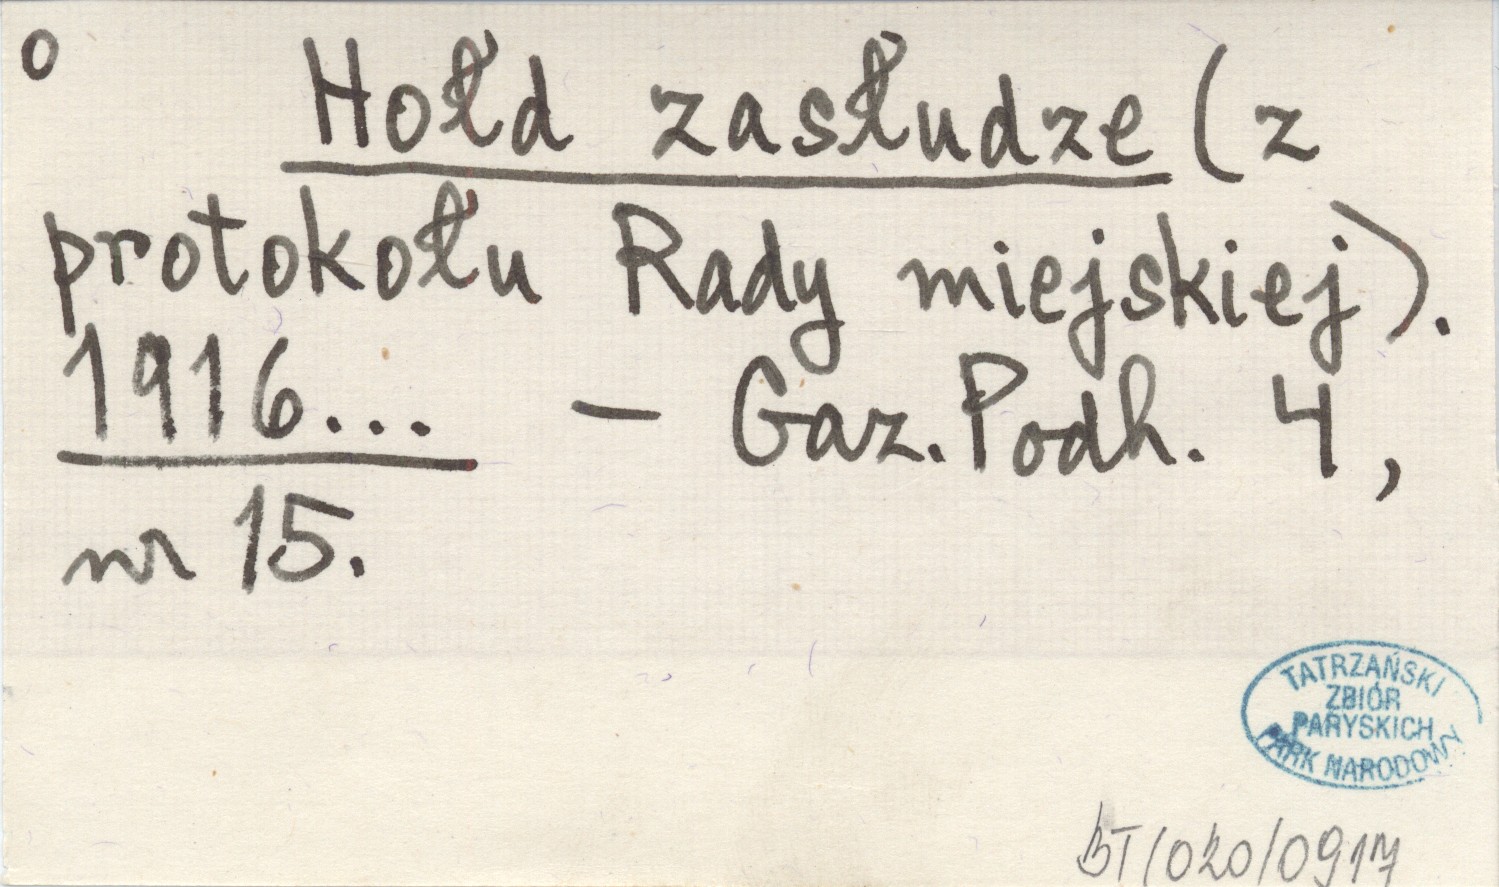 o
Hołd zasłudze (z
protokołu Rady miejskiej).
1916... – Gaz. Podh. 4,
nr 15.
TATRZAŃSKI
ZBIÓR
PARYSKICH
PARK NARODOWY
BT/020/0917